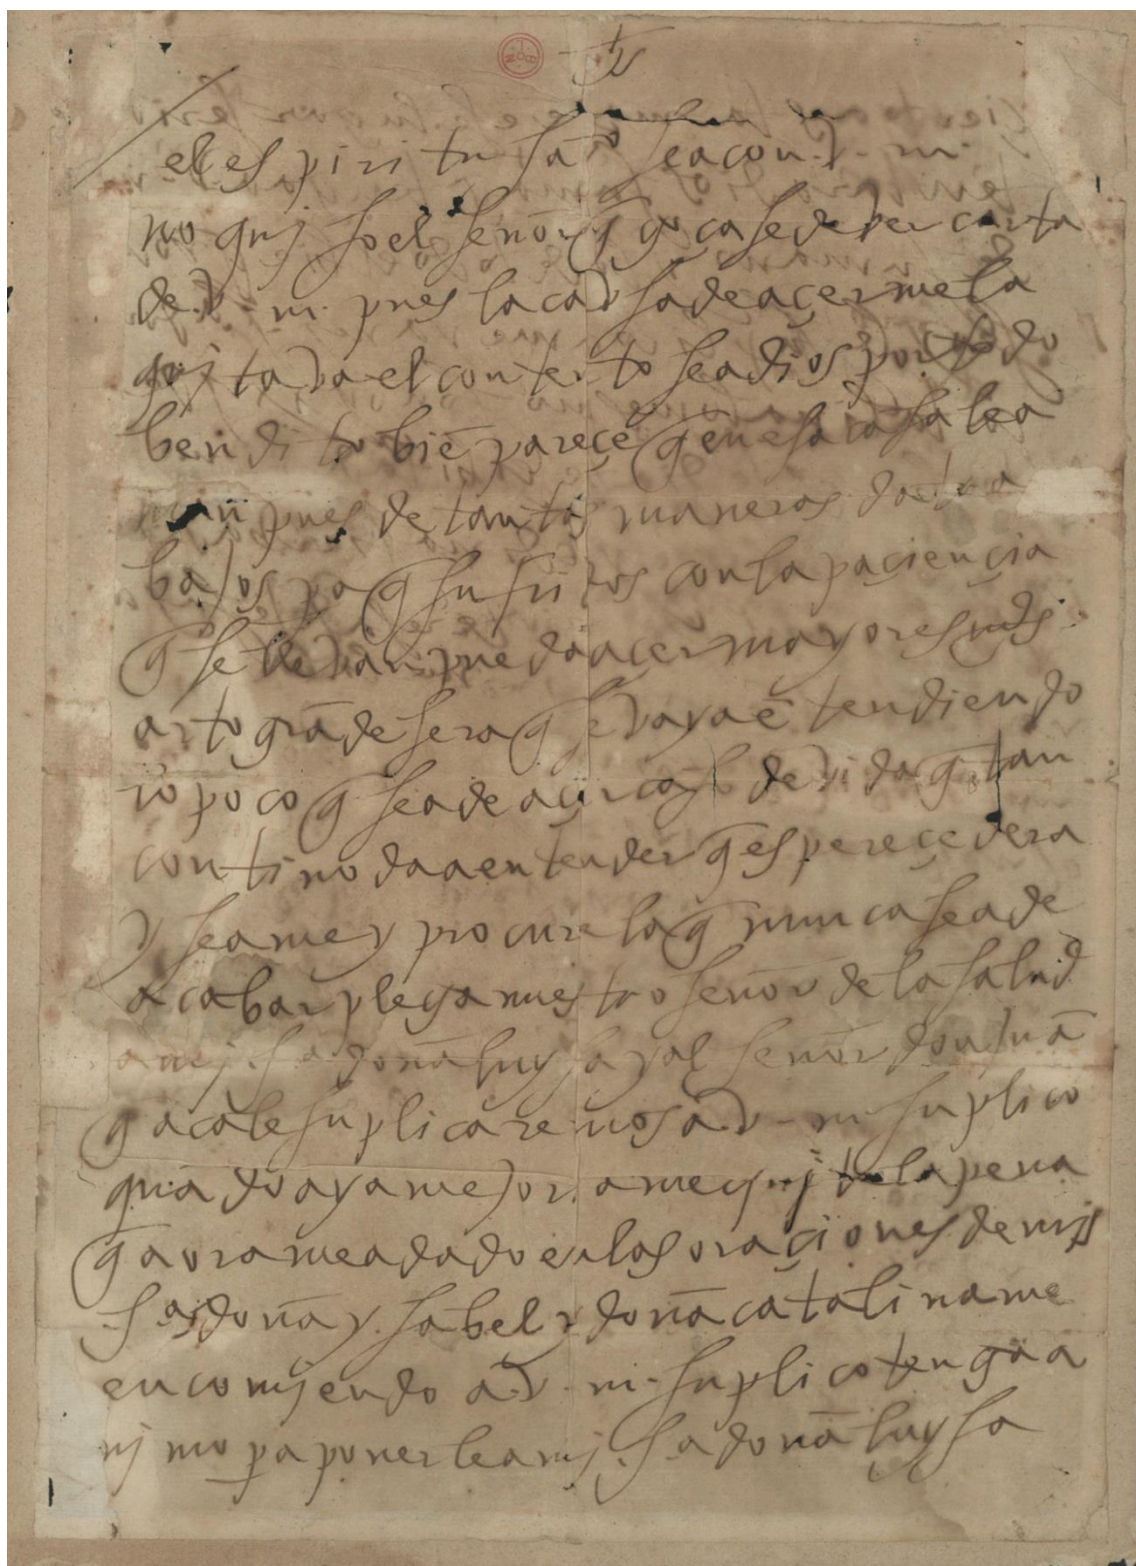 el espiritu sāto sea con v. m.
no quiso el señor q̃ goçase de ver carta
de v. m. pues la cavsa de açerme la
quitava el contento sea dios por todo
bendito biē pareçe q̃ en esa casa lea
man pues de tantas maneras da tra
bajos pa q̃ sufridos con la paçiençia
q̃ se llevan pueda açer mayores mds.
arto grāde sera q̃ se vaya ētendiendo
lo poco q̃ sea de açer caso de vida q̃ tan
contino da a entender q̃ es pereçedera
y se ame y procure la q̃ nunca sea de
acabar plega nuestro señor de la salud
a mi sa doña luysa y al señor don juā
q̃ aca le suplicaremos a v. m. suplico
quādo aya mejoria me quite la pena
q̃ aora me a dado en las oraçiones de mis
sas doña ysabel y doña catalina me
encomiendo a v. m. suplico tenga a
nimo pa ponerle a mi sa doña luysa